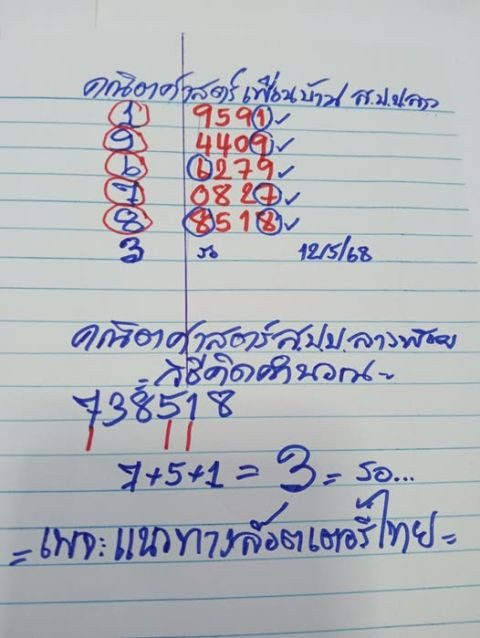 คณิตศาสตร์เพื่อนบ้าน ส.ป.ป.ลาว
1 9591 ✓
9 4409 ✓
6 6279 ✓
7 0827 ✓
8 8518 ✓
3 รอ 12/5/68
คณิตศาสตร์ ส.ป.ป.ลาว พร้อม
= วิธีคิดคำนวณ =
738518
7+5+1 = 3 = รอ...
= เพจ: แนวทางล็อตเตอรี่ไทย =